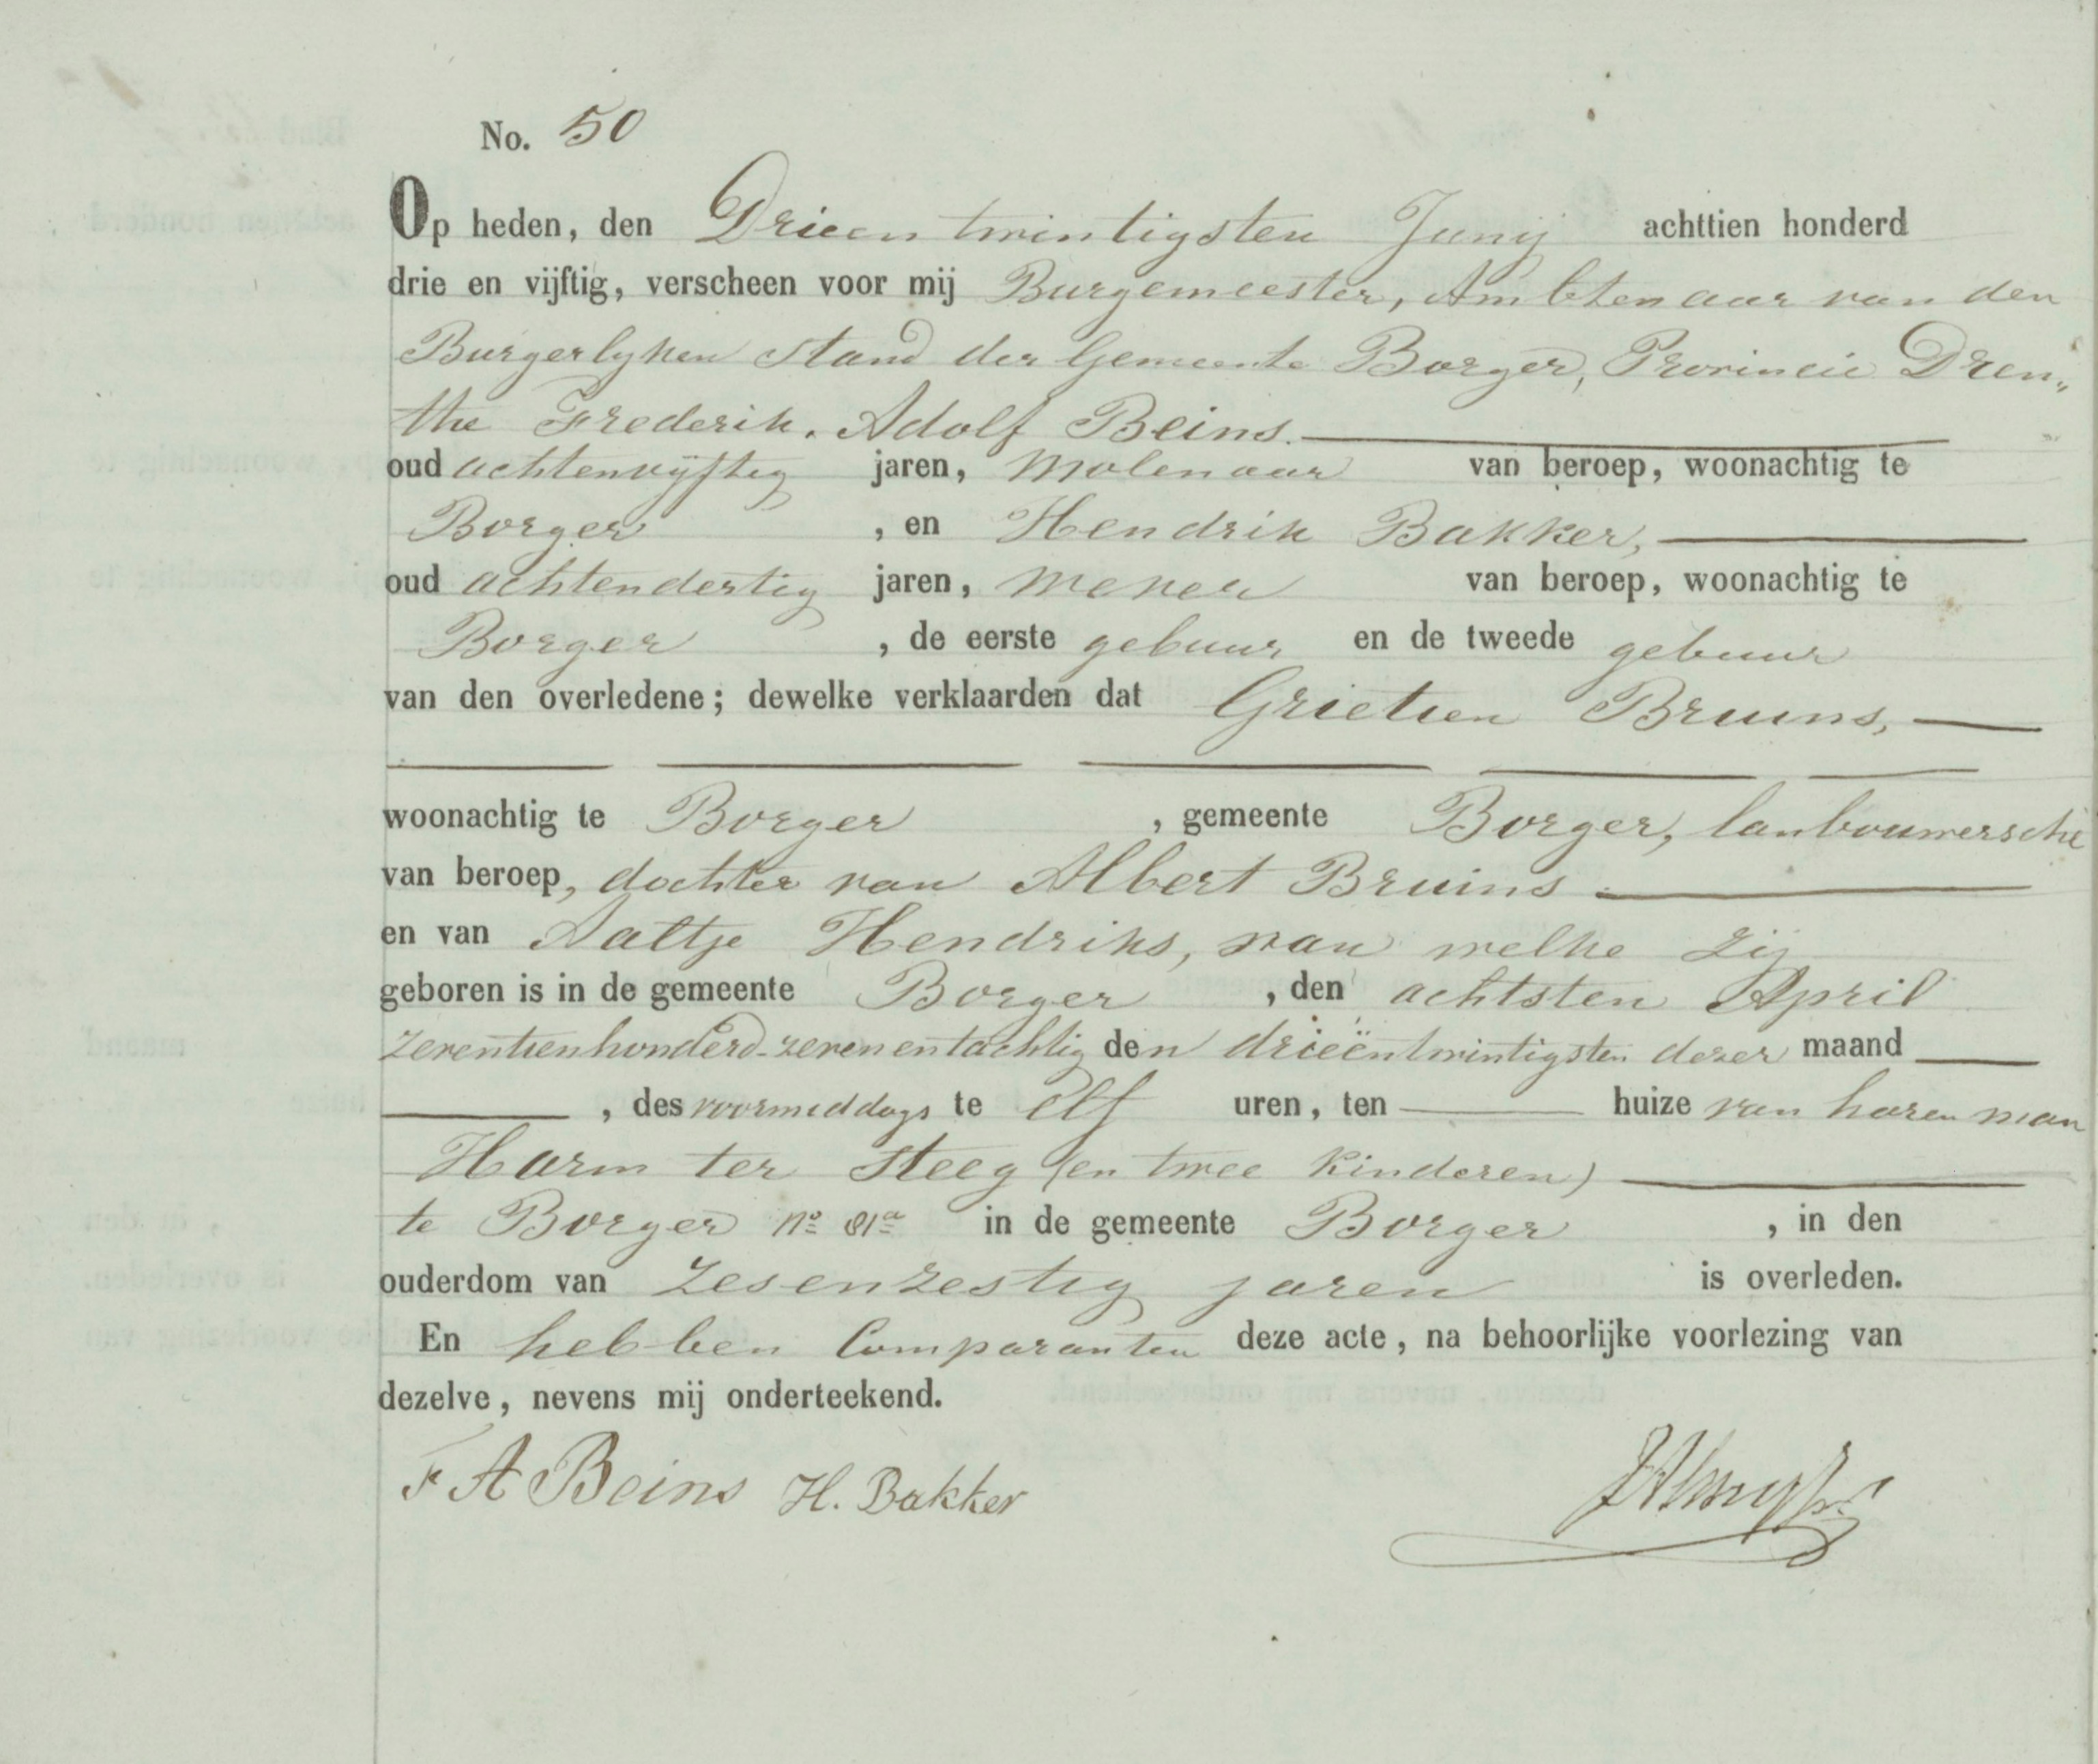 No. 50
Op heden, den Drieentwintigsten Junij achttien honderd
drie en vijftig, verscheen voor mij Burgemeester, Ambtenaar van den
Burgerlyken Stand der Gemeente Borger, Provincie Dren„
the Frederik Adolf Beins.
oud achtenvyftig jaren, molenaar van beroep, woonachtig te
Borger , en Hendrik Bakker,
oud achtendertig jaren, wever van beroep, woonachtig te
Borger , de eerste gebuur en de tweede gebuur
van den overledene; dewelke verklaarden dat Grietien Bruins,
woonachtig te Borger , gemeente Borger, lanbouwersche
van beroep, dochter van Albert Bruins
en van Aaltje Hendriks, van welke zij
geboren is in de gemeente Borger , den achtsten April
zeventienhonderd-zevenentachtig den drieëntwintigsten dezer maand
, des voormiddags te elf uren, ten huize van haren man
Harm ter Steeg (en twee kinderen)
te Borger No 81a in de gemeente Borger , in den
ouderdom van zesenzestig jaren is overleden.
En hebben Comparanten deze acte, na behoorlijke voorlezing van
dezelve, nevens mij onderteekend.
F A Beins H. Bakker